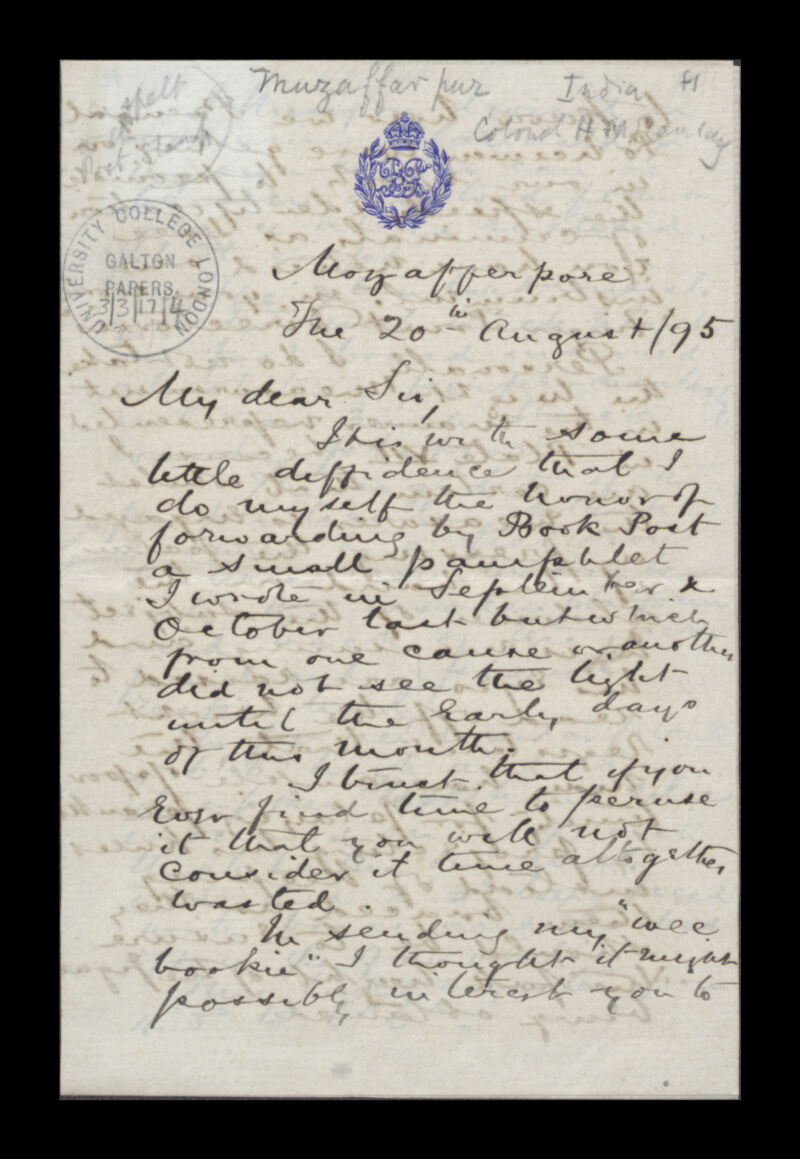 Muzaffarpur India f1
Colonel H M Ramsay
spelt
Post stamp
UNIVERSITY COLLEGE LONDON
GALTON
PAPERS
3/3/17/4
Mozafferpore
The 20th August/95
My dear Sir,
It is with some
little diffidence that I
do myself the honor of
forwarding by Book Post
a small pamphlet
I wrote in September &
October last but which
from one cause or another
did not see the light
until the Early days
of this month.
I trust that if you
Ever find time to peruse
it that you will not
consider it time altogether
wasted.
In sending my "wee
bookie" I thought it might
possibly interest you to